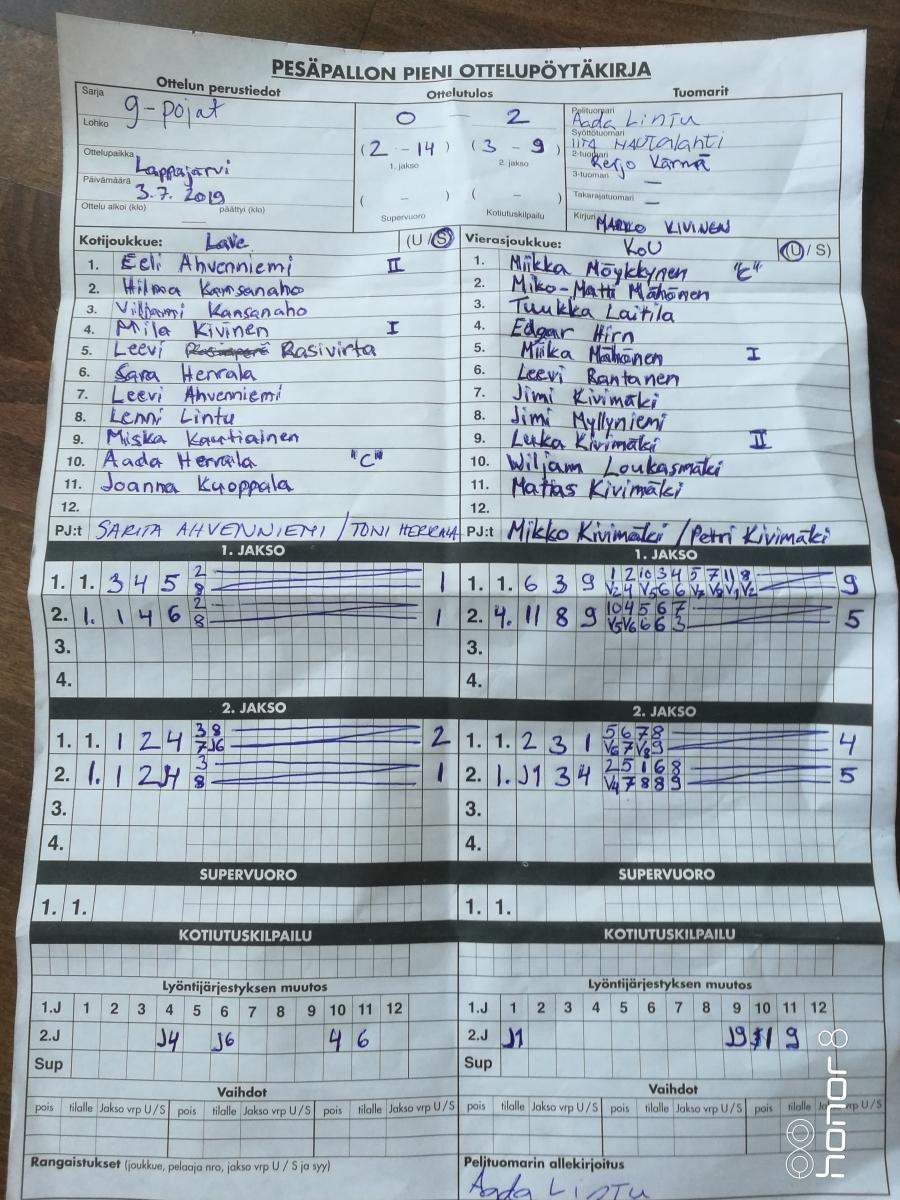 PESÄPALLON PIENI OTTELUPÖYTÄKIRJA
Ottelun perustiedot
Ottelutulos
Tuomarit
Sarja
g-pojat
Lohko
Ottelupaikka
Lappajärvi
Päivämäärä
3.7. 2019
Ottelu alkoi (klo) — päättyi (klo)
0 — 2
(2 - 14) (3 - 9)
1. jakso 2. jakso
( - ) ( - )
Supervuoro Kotiutuskilpailu
Pelituomari
Aada Lintu
Syöttötuomari
IITA HAUTALAHTI
2-tuomari
Reijo Värmä
3-tuomari
—
Takarajatuomari
—
Kirjuri
MARKO KIVINEN
Kotijoukkue: LaVe (U / S)
1. Eeli Ahvenniemi II
2. Hilma Kansanaho
3. Viljami Kansanaho
4. Mila Kivinen I
5. Leevi Rasivirta
6. Sara Herrala
7. Leevi Ahvenniemi
8. Lenni Lintu
9. Miska Kautiainen
10. Aada Herrala "C"
11. Joanna Kuoppala
12.
PJ:t SARITA AHVENNIEMI / TONI HERRALA
Vierasjoukkue: KoU (U / S)
1. Miikka Möykkynen "C"
2. Miko-Matti Mähönen
3. Tuukka Laitila
4. Edgar Hirn
5. Miika Mähönen I
6. Leevi Rantanen
7. Jimi Kivimäki
8. Jimi Myllyniemi
9. Luka Kivimäki II
10. Wiljam Loukasmäki
11. Matias Kivimäki
12.
PJ:t Mikko Kivimäki / Petri Kivimäki
1. JAKSO
1. 1. 3 4 5 2 1
8
2. 1. 1 4 6 2 1
8
3.
4.
1. JAKSO
1. 1. 6 3 9 1 2 10 3 4 5 7 11 8 9
V2 4 V5 6 6 V7 V9 V1 V2
2. 4. 11 8 9 10 4 5 6 7 5
V5 V6 6 6 3
3.
4.
2. JAKSO
1. 1. 1 2 4 3 8 2
7 J6
2. 1. 1 2 J4 3 1
8
3.
4.
2. JAKSO
1. 1. 2 3 1 5 6 7 8 4
V6 7 V8 9
2. 1. J1 3 4 2 5 1 6 8 5
V4 7 8 8 9
3.
4.
SUPERVUORO
1. 1.
SUPERVUORO
1. 1.
KOTIUTUSKILPAILU
KOTIUTUSKILPAILU
Lyöntijärjestyksen muutos
1.J 1 2 3 4 5 6 7 8 9 10 11 12
2.J J4 J6 4 6
Sup
Lyöntijärjestyksen muutos
1.J 1 2 3 4 5 6 7 8 9 10 11 12
2.J J1 J9 1 9
Sup
Vaihdot
pois tilalle Jakso vrp U / S pois tilalle Jakso vrp U / S pois tilalle Jakso vrp U / S
Vaihdot
pois tilalle Jakso vrp U / S pois tilalle Jakso vrp U / S pois tilalle Jakso vrp U / S
Rangaistukset (joukkue, pelaaja nro, jakso vrp U / S ja syy)
Pelituomarin allekirjoitus
Aada Lintu
honor 8